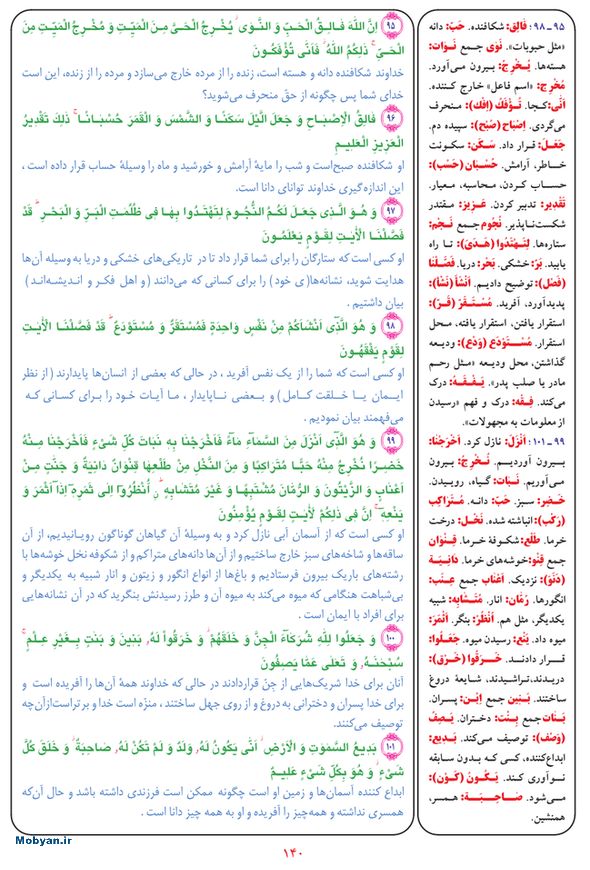 ۹۵ـ۹۸: فالِق: شکافنده. حَبّ: دانه
«مثل حبوبات». نَوی جمع نَوات:
هسته‌ها. یُخْرِجُ: بیرون می‌آورد.
مُخْرِج: «اسم فاعل» خارج کننده.
أنّی: کجا. تُـؤفَکُ (إفک): منحرف
می‌گردی. إصْباح (صُبح): سپیده دم.
جَعَلَ: قرار داد. سَکَن: سکونت
خاطر، آرامش. حُسْبان (حَسَب):
حساب کردن، محاسبه، معیار.
تَقْدِیر: تدبیر کردن. عَزِیز: مقتدر
شکست‌ناپذیر. نُجُوم جمع نَجْم:
ستاره‌ها. لِتَهْتَدُوا (هَدَیَ): تا راه
یابید. بَرّ: خشکی. بَحْر: دریا. فَصَّلْنَا
(فَصَل): توضیح دادیم. أنْشَأَ (نَشَأ):
پدیدآورد، آفرید. مُسْتَـقَرّ (قَـرّ):
استقرار یافتن، استقرار یافته، محل
استقرار. مُسْـتَوْدَع (وَدَع): ودیعه
گذاشتن، محل ودیعه «مـثل رحـم
مادر یا صلب پدر». یَـفْـقَـهُ: درک
می‌کند. فِقْه: درک و فهم «رسیدن
از معلومات به مجهولات».
۹۹ـ۱۰۱: أنْزَلَ: نازل کرد. أخْرَجْنَا:
بیـرون آوردیـم. نُـخْـرِجُ: بیـرون
می‌آوریم. نَبـات: گیـاه، روییـدن.
خَضِر: سبز. حَبّ: دانـه. مُتَراکِب
(رَکِبَ): انباشته شده. نَخْل: درخت
خرما. طَلْع: شکـوفـۀ خـرما. قِنْوان
جمع قِنْو: خوشه‌های خرما. دانـیَة
(دَنَوَ): نزدیک. أعْناب جمع عِنَب:
انگورها. رُمّان: انار. مُتَشـابِه: شبیه
یکدیگر، مثل هم. اُنْظُرْ: بنگر. أثْمَرَ:
میوه داد. یَنْع: رسیدن میوه. جَعَلُوا:
قــرار دادنــد. خَـرَقُوا (خَـرَق):
دریدند،تراشیدند، شایعۀ دروغ
ساختند. بَنِین جمع اِبْن: پسران.
بَنَات جمع بِنْت: دختران. یَـصِفُ
(وَصَف): توصیف می‌کند. بَدِیع:
ابداع‌کننده، کسی کـه بـدون سابقه
نـوآوری کنـد. یَکُـونُ (کَوَنَ):
می‌شود. صَاحِبَـة: همسر،
همنشین.
۹۵ اِنَّ اللّهَ فَـالِـقُ الْحَبِّ وَ النَّـوٰی ۖ یُخْـرِجُ الْحَیَّ مِـنَ الْمَیِّتِ وَ مُخْـرِجُ الْمَیِّتِ مِنَ
الْحَیِّ ۚ ذٰلِکُمُ اللّهُ ۖ فَاَنّٰی تُؤْفَکُونَ
خداوند شکافنده دانه و هسته است، زنده را از مرده خارج می‌سازد و مرده را از زنده، این است
خدای شما پس چگونه از حقّ منحرف می‌شوید؟
۹۶ فَالِقُ الْاِصْبَاحِ وَ جَعَلَ الَّیْلَ سَکَنًا وَ الشَّمْسَ وَ الْقَمَرَ حُسْبَانًـا ۚ ذٰلِکَ تَقْدِیرُ
الْعَزِیزِ الْعَلِیـمِ
او شکافنده صبح‌است و شب را مایۀ آرامش و خورشید و ماه را وسیلۀ حساب قرار داده است ،
این اندازه‌گیری خداوند توانای دانا است .
۹۷ وَ هُوَ الَّـذِی جَعَلَ لَکُمُ النُّجُومَ لِتَهْتَدُوا بِهَا فِی ظُلُمٰتِ الْبَرِّ وَ الْبَحْرِ ۗ قَدْ
فَصَّلْنَا الْاٰیٰتِ لِقَوْمٍ یَعْلَمُونَ
او کسی است که ستارگان را برای شما قرار داد تا در تاریکی‌های خشکی و دریا به وسیله آن‌ها
هدایت شوید، نشانه‌ها(ی خود ) را برای کسانی که می‌دانند ( و اهل فکـر و اندیشه‌انـد )
بیان داشتیم .
۹۸ وَ هُوَ الَّذِیٓ اَنْشَاَکُمْ مِنْ نَفْسٍ وَاحِدَةٍ فَمُسْتَقَرٌّ وَ مُسْتَوْدَعٌ ۗ قَدْ فَصَّلْنَا الْاٰیٰتِ
لِقَوْمٍ یَفْقَهُونَ
او کسی است که شما را از یک نفس آفرید ، در حالی که بعضی از انسان‌ها پایدارند ( از نظر
ایمـان یـا خـلقت کامل ) و بعضـی نـاپایدار ، ما آیات خـود را بـرای کسانـی کـه
می‌فهمند بیان نمودیم .
۹۹ وَ هُوَ الَّذِیٓ اَنْزَلَ مِنَ السَّمَآءِ مَآءً فَاَخْرَجْنَا بِهِ نَبَاتَ کُلِّ شَیْءٍ فَاَخْرَجْنَا مِنْـهُ
خَضِـرًا نُخْرِجُ مِنْهُ حَبًّـا مُتَرَاکِبًا وَ مِنَ النَّخْلِ مِنْ طَلْعِهَا قِنْوَانٌ دَانِیَةٌ وَ جَنّٰتٍ مِـنْ
اَعْنَابٍ وَ الزَّیْتُونَ وَ الرُّمَّانَ مُشْتَبِهًـا وَ غَیْرَ مُتَشَابِهٍ ۗ اُنْظُرُوٓا اِلٰی ثَمَرِهِٓ اِذَآ اَثْمَرَ وَ
یَنْعِهِ ۚ اِنَّ فِی ذٰلِکُمْ لَاٰیٰتٍ لِقَوْمٍ یُؤْمِنُونَ
او کسی است که از آسمان آبی نازل کرد و به وسیلۀ آن گیاهان گوناگون رویـانیدیم، از آن
ساقه‌ها و شاخه‌های سبز خارج ساختیم و از آن‌ها دانه‌های متراکم و از شکوفه نخل خوشه‌ها با
رشته‌های باریک بیرون فرستادیم و باغ‌ها از انواع انگور و زیتون و انار شبیه به یکدیگر و
بی‌شباهت هنگامی که میوه می‌کند به میوه آن و طرز رسیدنش بنگرید که در آن نشانه‌هایی
برای افراد با ایمان است .
۱۰۰ وَ جَعَلُوا لِلّهِ شُرَکَآءَ الْجِنَّ وَ خَلَقَهُمْ ۖ وَ خَرَقُوا لَهُ بَنِینَ وَ بَنٰتٍ بِـغَیْرِ عِلْـمٍ ۚ
سُبْحٰنَـهُ وَ تَعٰلٰی عَمَّا یَصِفُونَ
آنان برای خدا شریک‌هایی از جنّ قراردادند در حالی که خداوند همۀ آن‌ها را آفریده است و
برای خدا پسران و دخترانی به دروغ و از روی جهل ساختند ، منزّه است خدا و برتراست‌ازآن‌چه
توصیف می‌کنند.
۱۰۱ بَدِیعُ السَّمٰوٰتِ وَ الْاَرْضِ ۖ اَنّٰی یَکُونُ لَهُ وَلَدٌ وَ لَمْ تَکُنْ لَهُ صَاحِبَةٌ ۖ وَ خَلَقَ کُلَّ
شَیْءٍ ۖ وَ هُوَ بِکُلِّ شَیْءٍ عَلِیمٌ
ابداع کننده آسمان‌ها و زمین او است چگونه ممکن است فرزندی داشته باشد و حال آن‌که
همسری نداشته و همه‌چیز را آفریده و او به همه چیز دانا است .
Mobyan.ir
۱۴۰